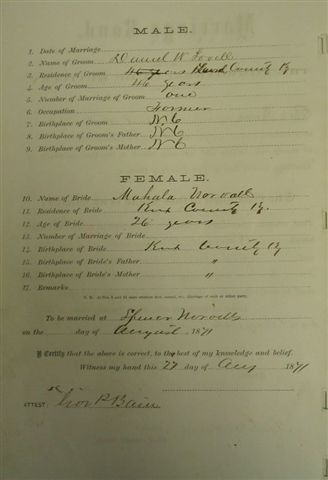 MALE.
1. Date of Marriage
2. Name of Groom Daniel W
3. Residence of Groom 46 years County Ky
4. Age of Groom 46 years
5. Number of Marriage of Groom one
6. Occupation Farmer
7. Birthplace of Groom N C
8. Birthplace of Groom's Father N C
9. Birthplace of Groom's Mother N C
FEMALE.
10. Name of Bride Mahala Norvell
11. Residence of Bride County Ky.
12. Age of Bride 26 years
13. Number of Marriage of Bride
14. Birthplace of Bride County Ky
15. Birthplace of Bride's Father "
16. Birthplace of Bride's Mother "
17. Remarks
To be married at Spencer Norvells
on the day of August 1871
I Certify that the above is correct, to the best of my knowledge and belief.
Witness my hand this 29 day of Aug 1871
ATTEST